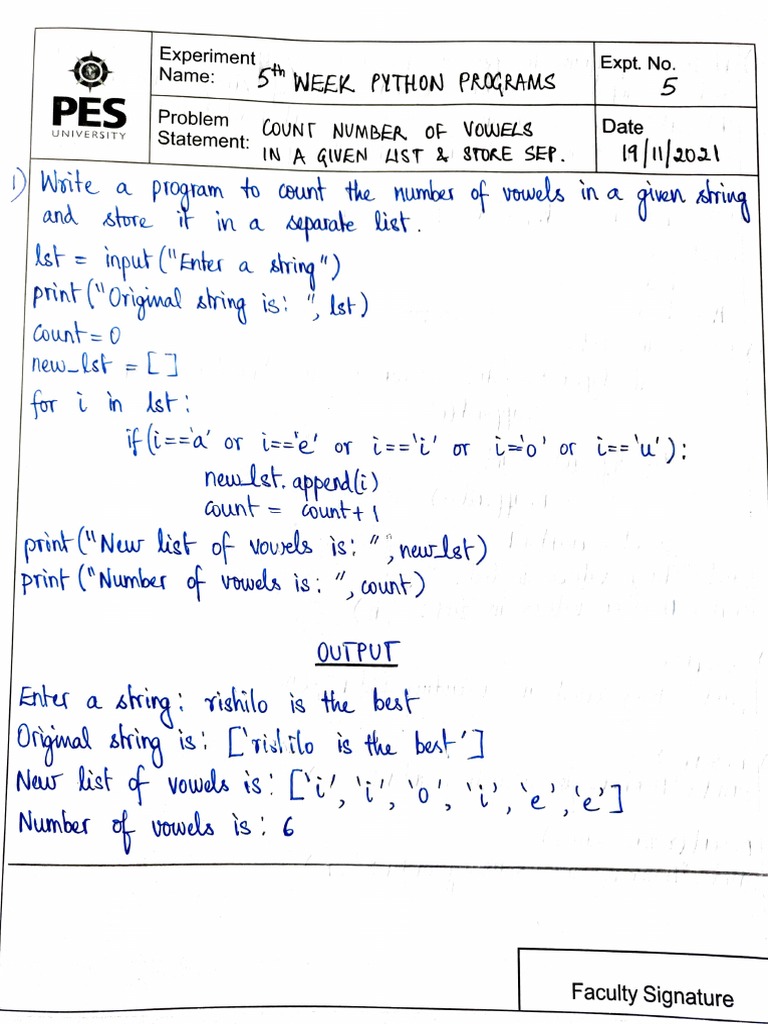 PES
UNIVERSITY
Experiment Name: 5th WEEK PYTHON PROGRAMS
Expt. No. 5
Problem Statement: COUNT NUMBER OF VOWELS
IN A GIVEN LIST & STORE SEP.
Date 19/11/2021
1) Write a program to count the number of vowels in a given string
and store it in a separate list.
lst = input("Enter a string")
print("Original string is: ", lst)
count=0
new_lst = []
for i in lst:
if(i=='a' or i=='e' or i=='i' or i='o' or i=='u'):
new_lst.append(i)
count = count+1
print("New list of vowels is: ", new_lst)
print("Number of vowels is: ", count)
OUTPUT
Enter a string: rishilo is the best
Original string is: ['rishilo is the best']
New list of vowels is: ['i', 'i', 'o', 'i', 'e', 'e']
Number of vowels is: 6
Faculty Signature